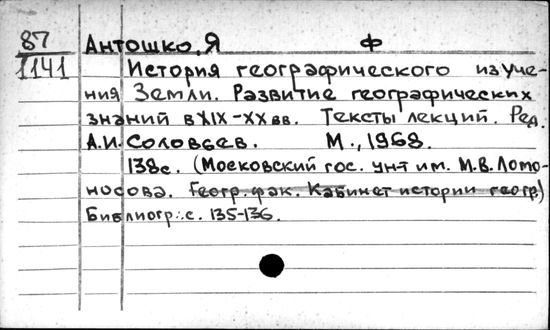 87 Антошко, Я Ф
1141 История географического изуче-
ния Земли. Развитие географических
знаний в XIX-XX вв. Тексты лекций. Ред.
А.И. Соловьев. М., 1968.
138с. (Московский гос. ун-т им. М.В. Ломо-
носова. Геогр. фак. Кабинет истории геогр)
Библиогр.: с. 135-136.